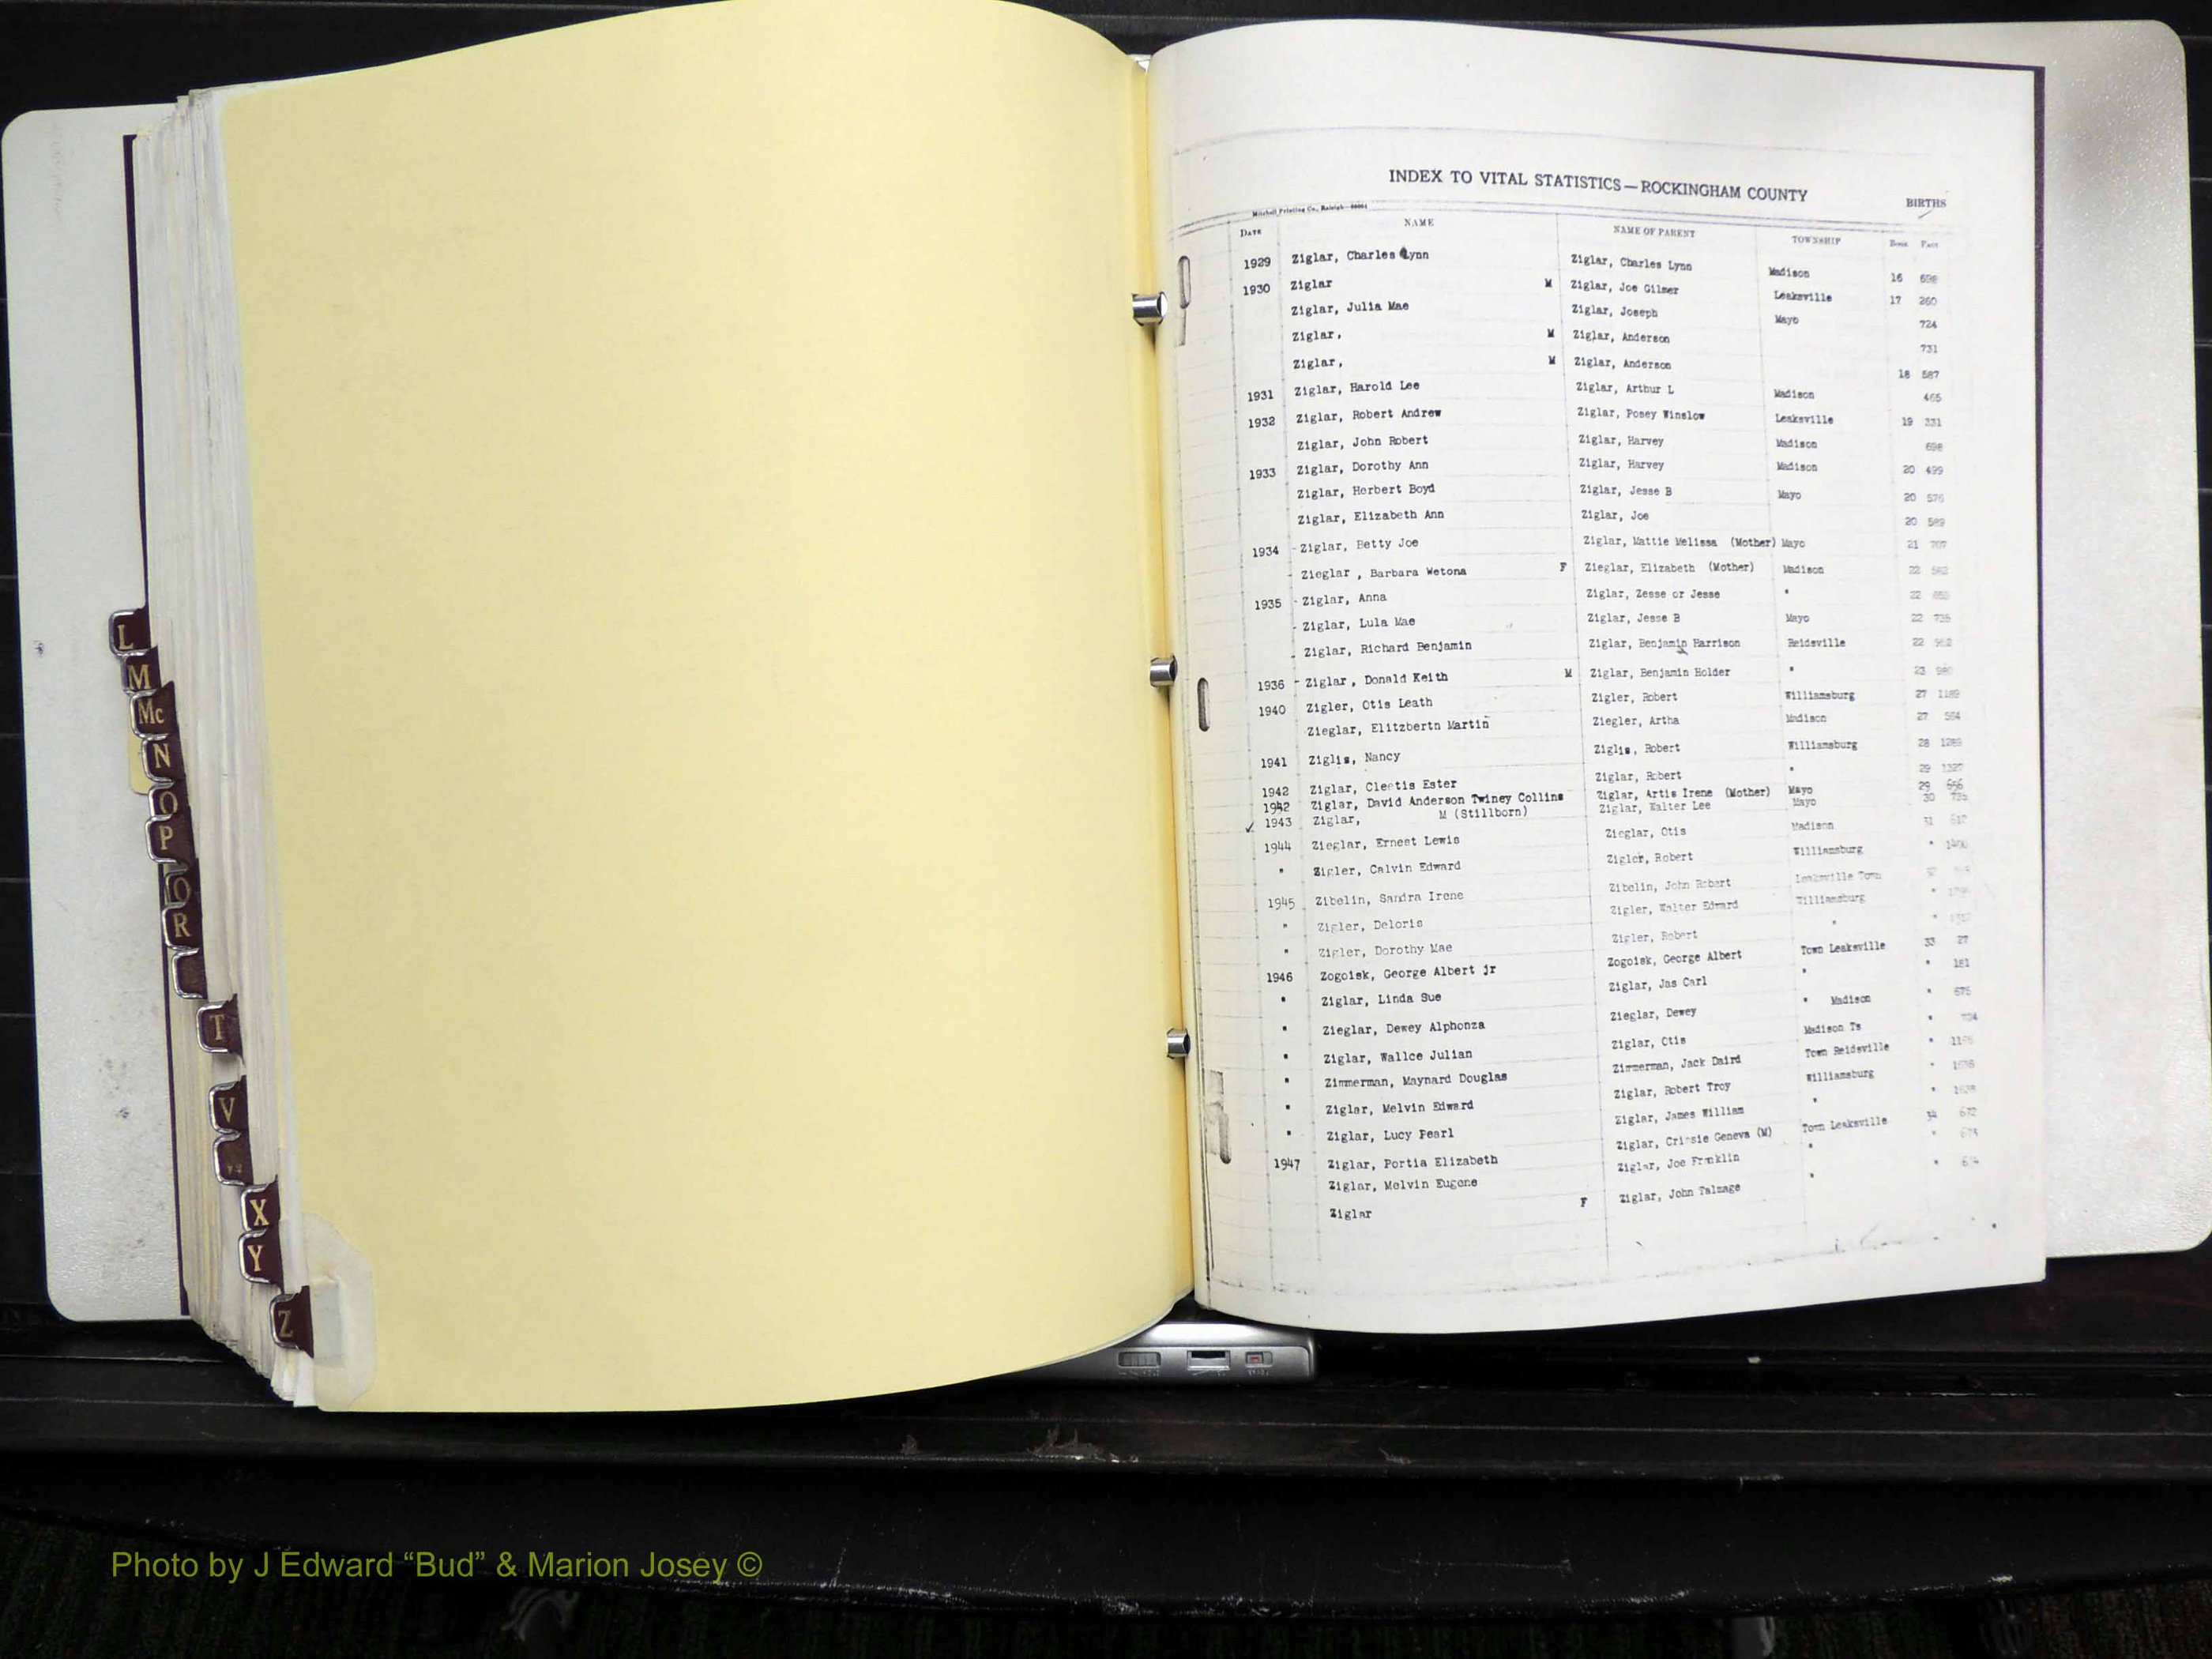 INDEX TO VITAL STATISTICS — ROCKINGHAM COUNTY
BIRTHS
Mitchell Printing Co., Raleigh
DATE NAME NAME OF PARENT TOWNSHIP BOOK PAGE
1929 Ziglar, Charles Lynn Ziglar, Charles Lynn Madison 16 698
1930 Ziglar M Ziglar, Joe Gilmer Leaksville 17 260
Ziglar, Julia Mae Ziglar, Joseph Mayo 724
Ziglar, M Ziglar, Anderson 731
Ziglar, M Ziglar, Anderson 18 587
1931 Ziglar, Harold Lee Ziglar, Arthur L Madison 465
1932 Ziglar, Robert Andrew Ziglar, Posey Winslow Leaksville 19 331
Ziglar, John Robert Ziglar, Harvey Madison 698
1933 Ziglar, Dorothy Ann Ziglar, Harvey Madison 20 499
Ziglar, Herbert Boyd Ziglar, Jesse B Mayo 20 576
Ziglar, Elizabeth Ann Ziglar, Joe 20 589
1934 - Ziglar, Betty Joe Ziglar, Mattie Melissa (Mother) Mayo 21
- Zieglar , Barbara Wetona F Zieglar, Elizabeth (Mother) Madison 22
1935 - Ziglar, Anna Ziglar, Zesse or Jesse " 22
- Ziglar, Lula Mae Ziglar, Jesse B Mayo 22 735
- Ziglar, Richard Benjamin Ziglar, Benjamin Harrison Reidsville 22
1936 - Ziglar, Donald Keith M Ziglar, Benjamin Holder " 23
1940 Zigler, Otis Leath Zigler, Robert Williamsburg 27 1189
Zieglar, Elitzbertn Martin Ziegler, Artha Madison 27 564
1941 Ziglis, Nancy Ziglis, Robert Williamsburg 28
1942 Ziglar, Cleetis Ester Ziglar, Robert " 29 1327
1942 Ziglar, David Anderson Twiney Collins Ziglar, Artis Irene (Mother) Mayo 29 656
✓ 1943 Ziglar, M (Stillborn) Ziglar, Walter Lee Mayo 30 735
1944 Zieglar, Ernest Lewis Zieglar, Otis Madison 31
" Zigler, Calvin Edward Zigler, Robert Williamsburg "
1945 Zibelin, Sandra Irene Zibelin, John Robert Leaksville Town
" Zigler, Deloris Zigler, Walter Edward Williamsburg "
" Zigler, Dorothy Mae Zigler, Robert " "
1946 Zogoisk, George Albert jr Zogoisk, George Albert Town Leaksville 33 27
" Ziglar, Linda Sue Ziglar, Jas Carl " " 181
" Zieglar, Dewey Alphonza Zieglar, Dewey " Madison " 675
" Ziglar, Wallce Julian Ziglar, Otis Madison Ts "
" Zimmerman, Maynard Douglas Zimmerman, Jack Daird Town Reidsville "
" Ziglar, Melvin Edward Ziglar, Robert Troy Williamsburg "
" Ziglar, Lucy Pearl Ziglar, James William " "
1947 Ziglar, Portia Elizabeth Ziglar, Crissie Geneva (M) Town Leaksville 34 672
Ziglar, Melvin Eugene Ziglar, Joe Franklin " " 673
Ziglar F Ziglar, John Talmage " "
L
M
Mc
N
O
P
Q
R
T
V
X
Y
Z
Photo by J Edward “Bud” & Marion Josey ©